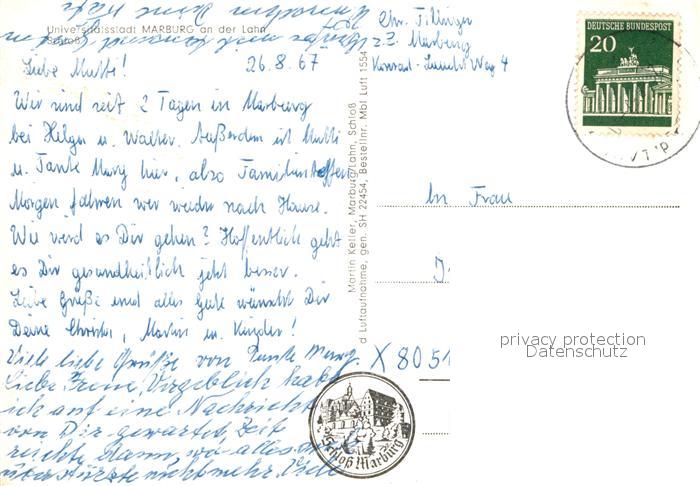 Universitätsstadt MARBURG an der Lahn
Schloß
Liebe Mutti! 26.8.67
Wir sind seit 2 Tagen in Marburg
bei Helga u. Walter. Außerdem ist Mutti
u. Tante Mary hier, also Familientreffen
Morgen fahren wir wieder nach Hause.
Wie wird es Dir gehen? Hoffentlich geht
es Dir gesundheitlich jetzt besser.
Liebe Grüße und alles Gute wünscht Dir
Deine Christa, Martin u. Kinder!
Viele liebe Grüße von Tante Mary.
Liebe Irene, Vergeblich habe
ich auf eine Nachricht
von Dir gewartet, Zeit
reichte dann, wo alles sich
überstürzte nicht mehr. Viele
Martin Keller, Marburg/Lahn, Schloß
d Luftaufnahme, gen. SH 22454, Bestellnr. Mbl Luft 1554
Chr.
z.Z. Marburg
Konrad- Weg 4
DEUTSCHE BUNDESPOST
20
An Frau
X 8051
Schloß Marburg
privacy protection
Datenschutz